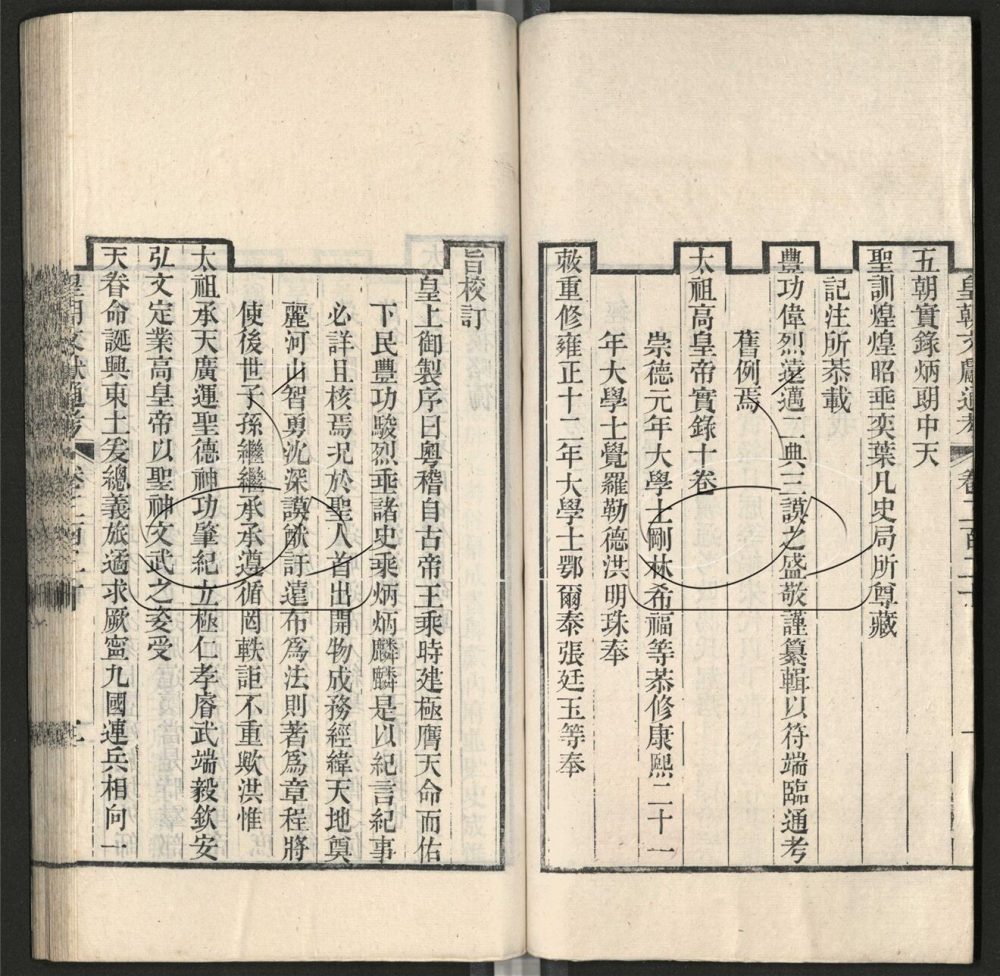 五朝實錄炳朗中天
聖訓煌煌昭垂奕葉凡史局所尊藏
記注所恭載
豐功偉烈遠邁二典三謨之盛敬謹纂輯以符端臨通考
舊例焉
太祖高皇帝實錄十卷
崇德元年大學士剛林希福等恭修康熙二十一
年大學士覺羅勒德洪明珠奉
敕重修雍正十二年大學士鄂爾泰張廷玉等奉
旨校訂
皇上御製序曰粵稽自古帝王乘時建極膺天命而佑
下民豐功駿烈垂諸史乘炳炳麟麟是以紀言紀事
必詳且核焉況於聖人首出開物成務經緯天地奠
麗河山智勇沈深謨猷訏遠布為法則著為章程將
使後世子孫繼繼承承遵循罔軼詎不重歟洪惟
太祖承天廣運聖德神功肇紀立極仁孝睿武端毅欽安
弘文定業高皇帝以聖神文武之姿受
天眷命誕興東土爰總義旅遹求厥寧九國連兵相向一